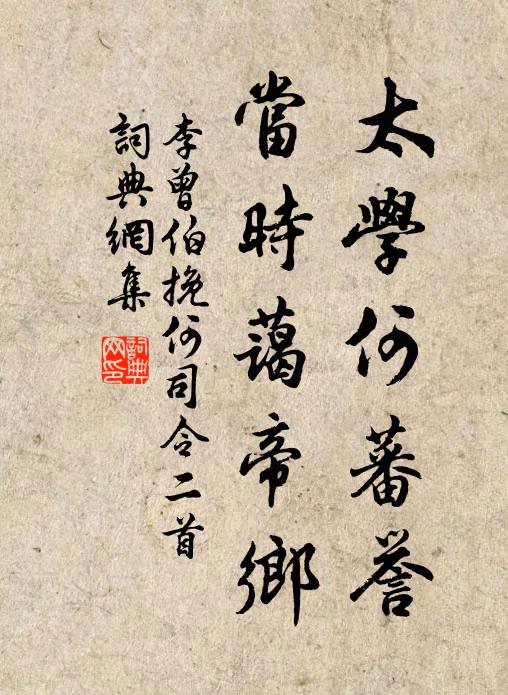 太學何蕃譽
當時藹帝鄉
李曾伯挽何司令二首
詞典網集
詞典
網印